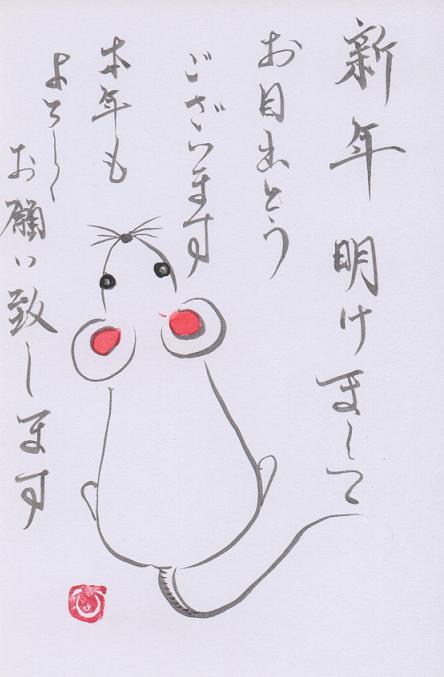 新年明けまして
お目出とう
ございます
本年も
よろしく
お願い致します